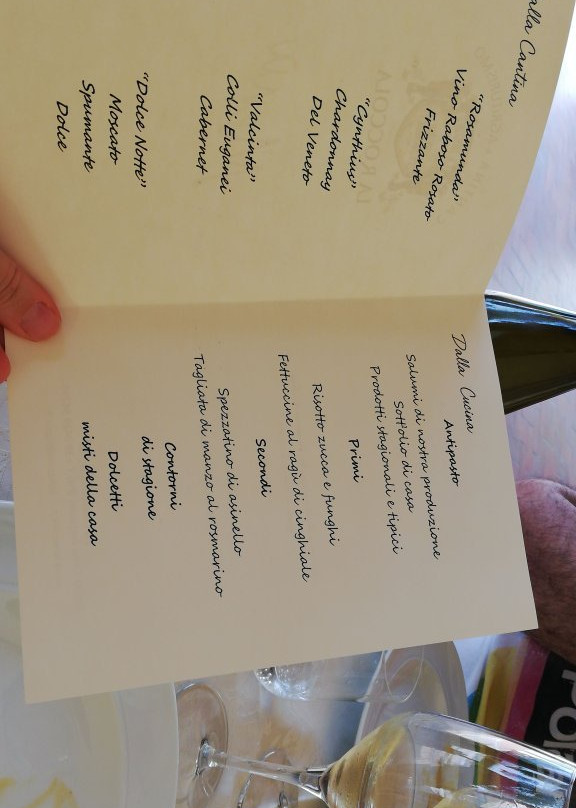 Dalla Cantina
"Rosamunda"
Vino Raboso Rosato
Frizzante
"Cynthius"
Chardonnay
Del Veneto
"Valcinta"
Colli Euganei
Cabernet
"Dolce Notte"
Moscato
Spumante
Dolce
Dalla Cucina
Antipasto
Salumi di nostra produzione
Sott'olio di casa
Prodotti stagionali e tipici
Primi
Risotto zucca e funghi
Fettuccine al ragù di cinghiale
Secondi
Spezzatino di asinello
Tagliata di manzo al rosmarino
Contorni
di stagione
Dolcetti
misti della casa